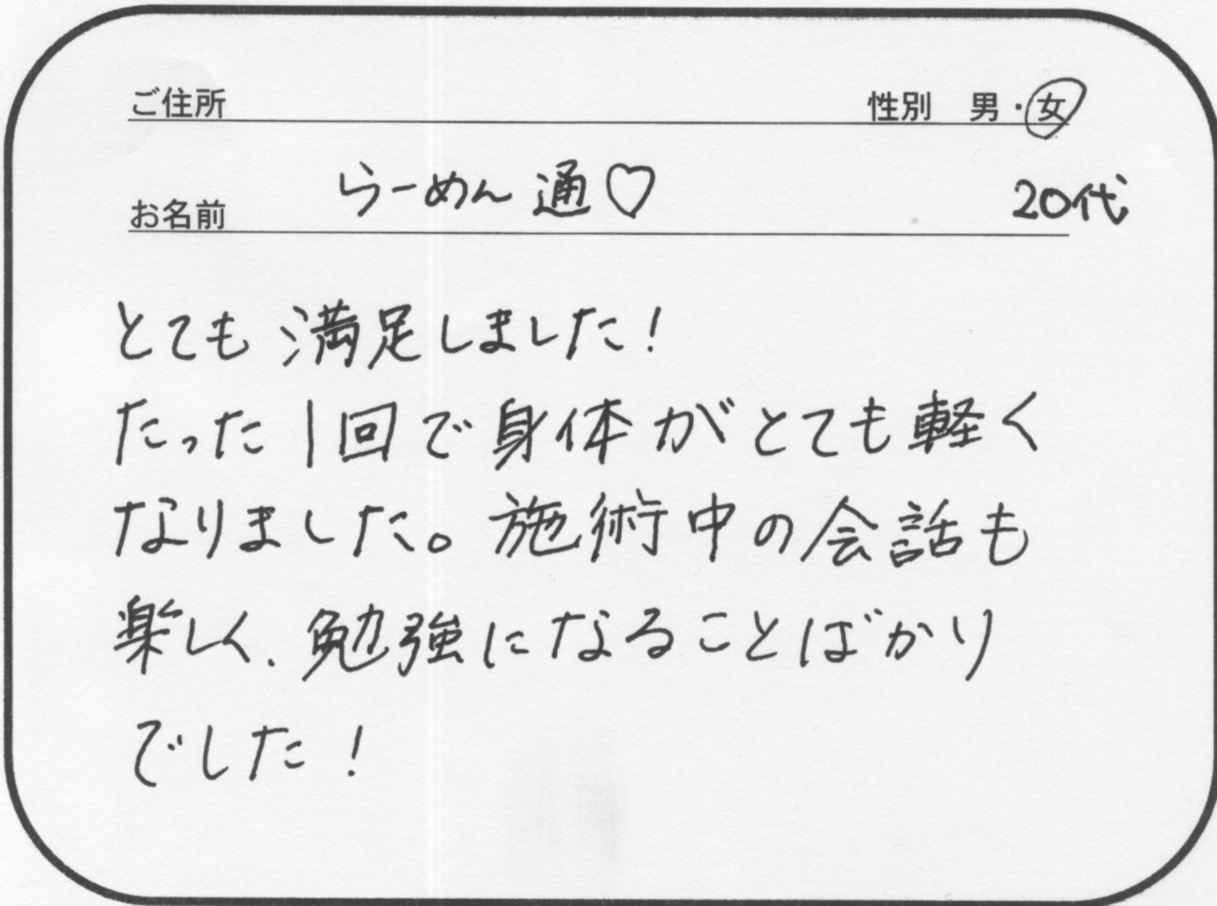 ご住所 性別 男・女
お名前 らーめん通♡ 20代
とても満足しました!
たった1回で身体がとても軽く
なりました。施術中の会話も
楽しく、勉強になることばかり
でした!